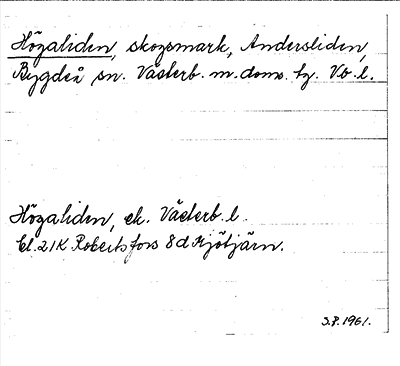 Högaliden, skogsmark, Andersliden,
Bygdeå sn. Västerb. m. doms. tg. Vb. l.
Högaliden, ek. Västerb. l.
bl. 21K Robertsfors 8d Mjötjärn.
S.P. 1961.